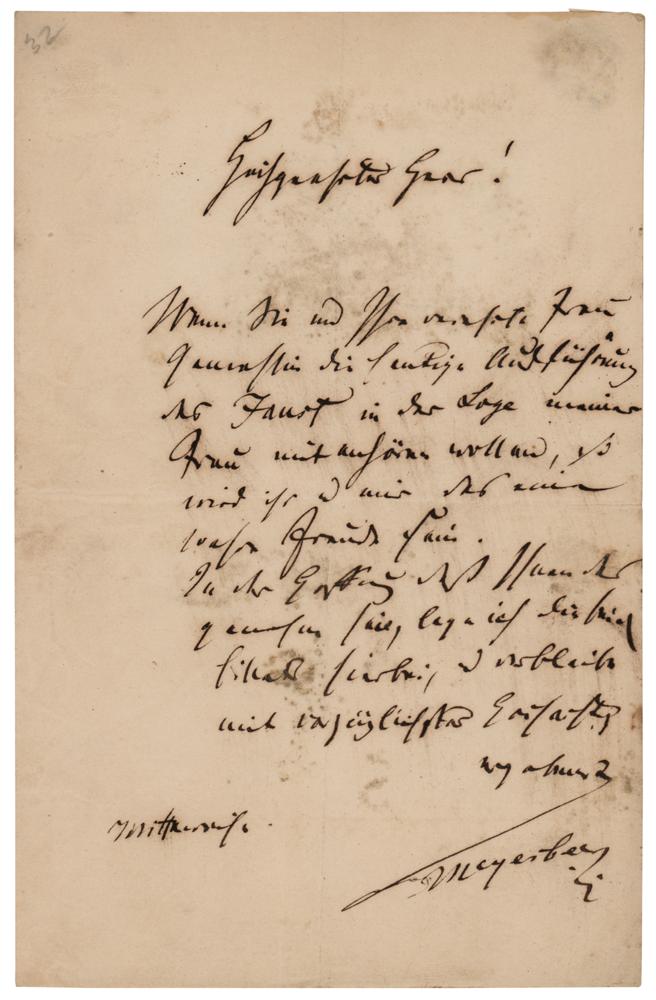 32
Hochgeehrter Herr!
Wenn Sie und Ihre verehrte Frau
Gemahlin die heutige Aufführung
des Faust in der Loge meiner
Frau mit anhören wollen, so
wird ihr u mir das eine
wahre Freude sein.
In der Hoffnung daß Ihnen das
genehm sei, lege ich die
Billets hierbei, u verbleibe
mit vorzüglichster Hochachtg
ergebenst
Mittwoch
Meyerbeer